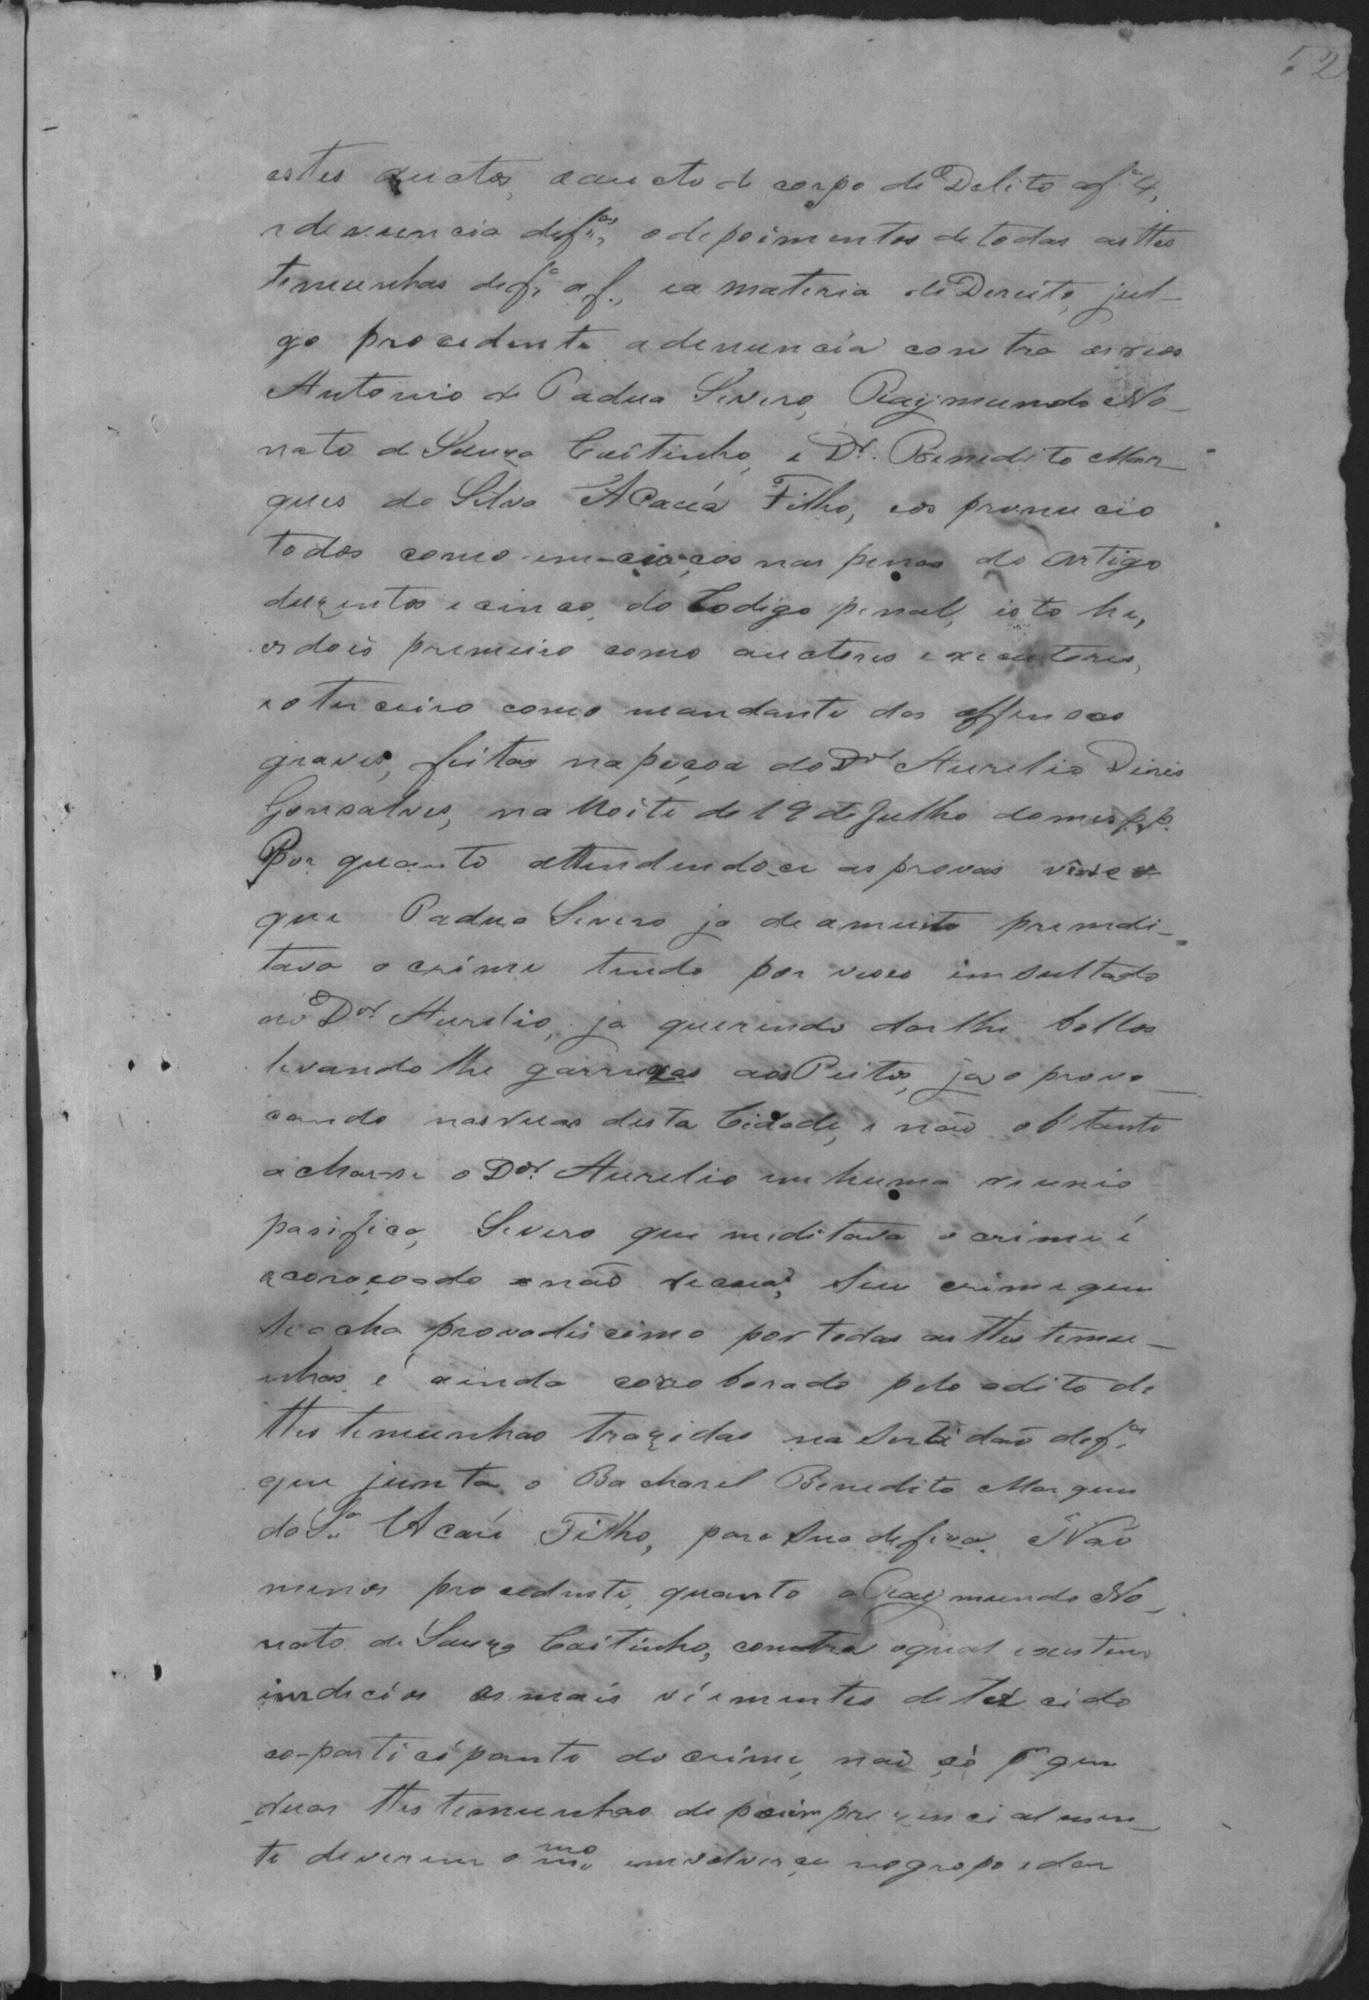 52
estes auctos, oaucto de corpo de Delito a f.ˢ 4,
a denuncia def.ᵃˢ, odepoimentos detodas as ttes
temunhas def.ᵃ a f., ea materia de Dereito, jul-
go procedente adenuncia contra osreos
Antonio de Padua Severo, Raymundo No-
nato de Souza Coitinho, e Dr. Benedito Mar-
ques da Silva Acauã Filho, eos pronucio
todos como incurços nas penas do artigo
duzentos e cinco, do Codigo penal, isto he,
osdois premeiro como auctores executores,
eoterceiro como mandante das offensas
graves, feitas napeçoa doDor Aurelio Dinis
Gonsalves, na Noite de 19 de Julho domes p.p.
Por quanto attendendo-ce as provas vêse
que Padua Severo ja de amuito premedi-
tava o crime tendo por veses imsultado
ao Dor. Aurelio, ja querendo darlhe bollos
levando lhe garruxas aos Peitos, ja o provo-
cando nasruas desta Cidade, e não obstante
acharse o Dor. Aurelio em huma reunio
pasifica, Severo que meditava o crime é
acoroçoado e não recua, seu crime que
se acha provadiscimo por todas as ttestemu-
nhas é ainda coroborado pelo adito de
ttestemunhas trazidas na Sertidão def.ᵃˢ
que junta o Bacharel Benedito Marques
da S.ᵃ Acauã Filho, para sua defeza. Não
menos procedente, quanto a Raymundo No-
nato de Souza Coitinho, contra oqual existem
indecios os mais viementes de ter cido
co-partecipante do crime, não só p.r que
duas ttestemunhas depoim prezencialmen-
te deverem o mmo envolverce nogropo edar